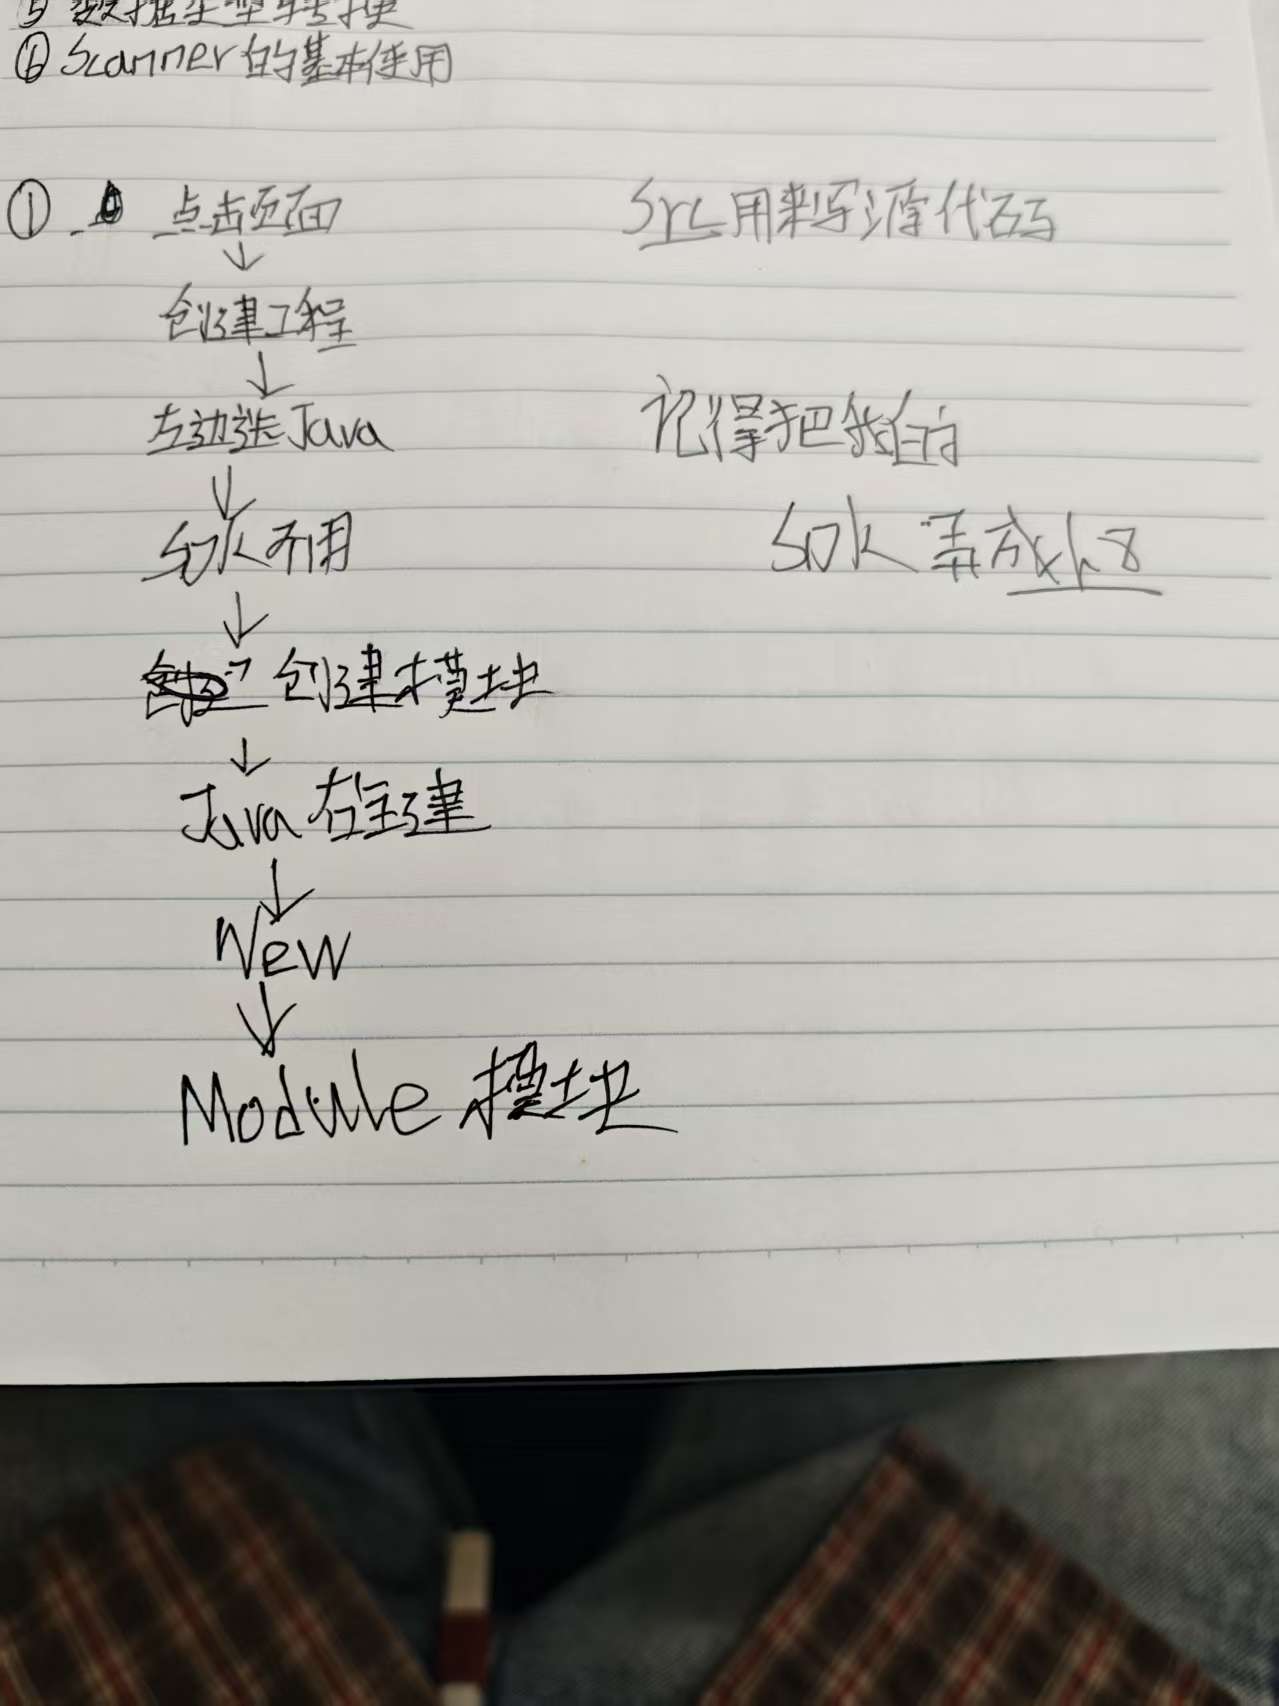 ⑤ 数据类型转换
⑥ Scanner的基本使用
① 点击页面
src用来写源代码
↓
创建工程
↓
左边选Java
记得把我的
↓
SDK不用
SDK弄成1.8
↓
创建模块
↓
Java 右键建
↓
New
↓
Module 模块